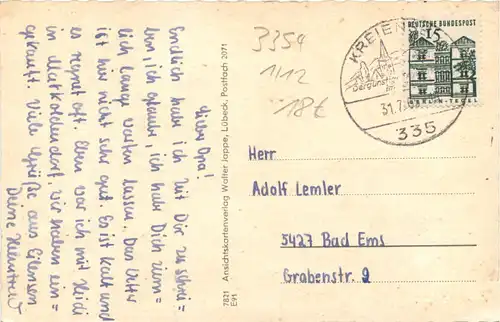 Liebe Opa!
Endlich habe ich Zeit Dir zu schrei-
ben, ich glaube, ich habe Dich ziem-
lich lange warten lassen. Das Wetter
ist hier nicht sehr gut. Es ist kalt und
es regnet oft. Eben war ich mit Heidi
in Markoldendorf, wir haben ein-
gekauft. Viele Grüße aus Eilensen
Deine
7831 Ansichtskartenverlag Walter Jappe, Lübeck, Postfach 2071
E91
3359
1/12
18€
KREIEN
31.7.
335
DEUTSCHE BUNDESPOST
15
BERLIN-TEGEL
Herr
Adolf Lemler
5427 Bad Ems
Grabenstr. 2